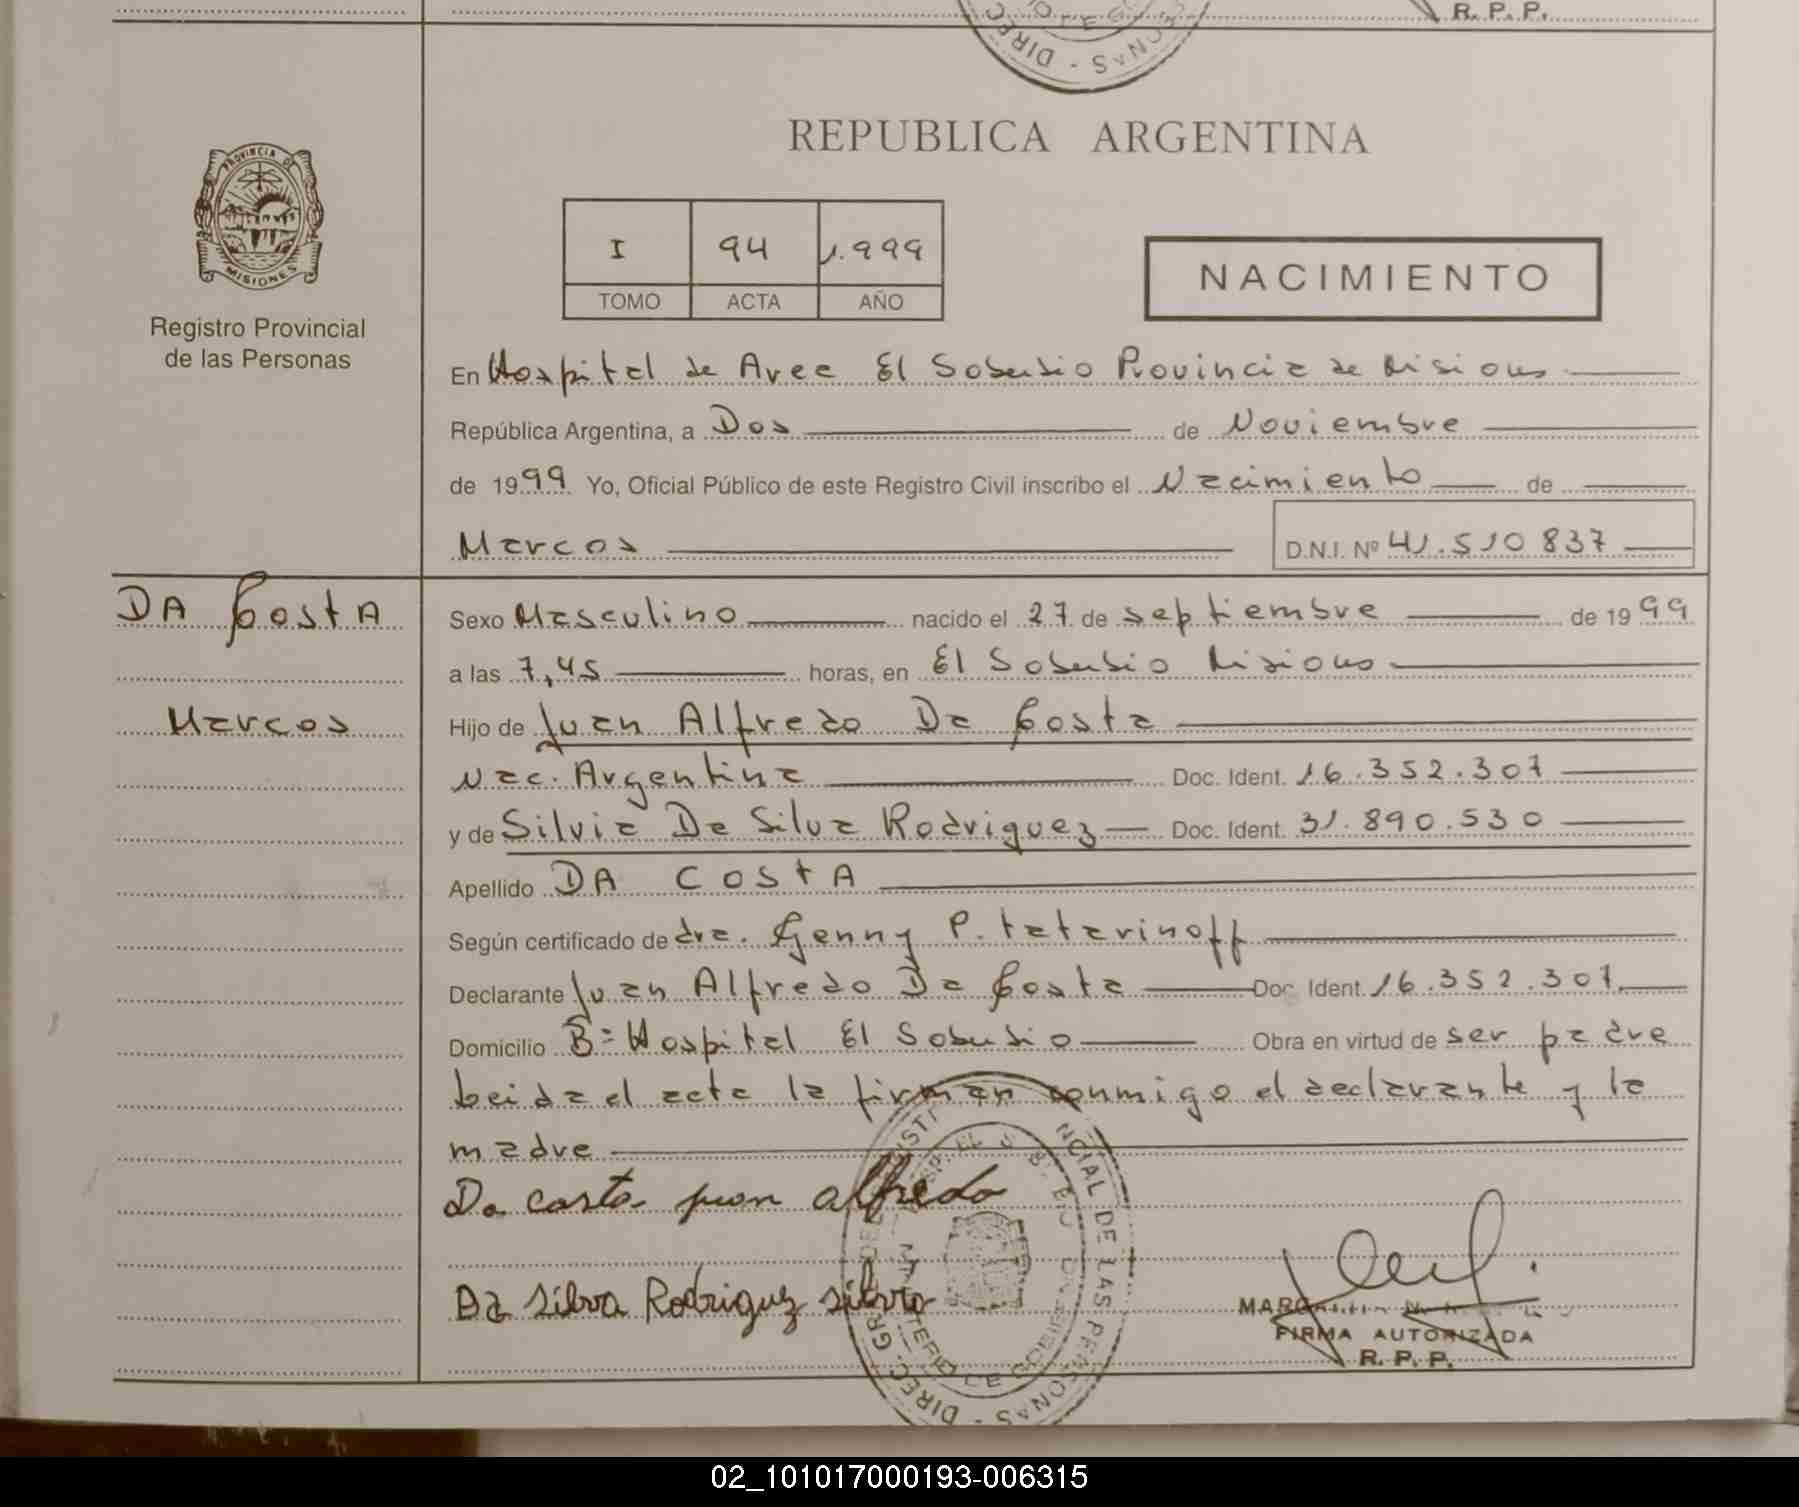 R. P. P.
DIREC
NAS
REPUBLICA ARGENTINA
PROVINCIA DE
MISIONES
Registro Provincial
de las Personas
I 94 1.999
TOMO ACTA AÑO
NACIMIENTO
En Hospital de Area El Soberbio Provincia de Misiones
República Argentina, a Dos de Noviembre
de 1999 Yo, Oficial Público de este Registro Civil inscribo el Nacimiento de
Marcos D.N.I. Nº 41.510837
DA Costa
Marcos
Sexo Masculino nacido el 27 de septiembre de 1999
a las 7,45 horas, en El Soberbio Misiones
Hijo de Juan Alfredo Da Costa
Nac. Argentina Doc. Ident. 16.352.307
y de Silvia Da Silva Rodriguez Doc. Ident. 31.890.530
Apellido DA COSTA
Según certificado de dra. Genny P. tatarinoff
Declarante Juan Alfredo Da Costa Doc. Ident. 16.352.307
Domicilio Bº Hospital El Soberbio Obra en virtud de ser padre
Leida el acta la firman conmigo el declarante y la
madre
Da costa juan alfredo
Da Silva Rodriguez silvia
FIRMA AUTORIZADA
R. P. P.
NCIAL DE LAS PERSONAS - DIREC. GR
02_101017000193-006315